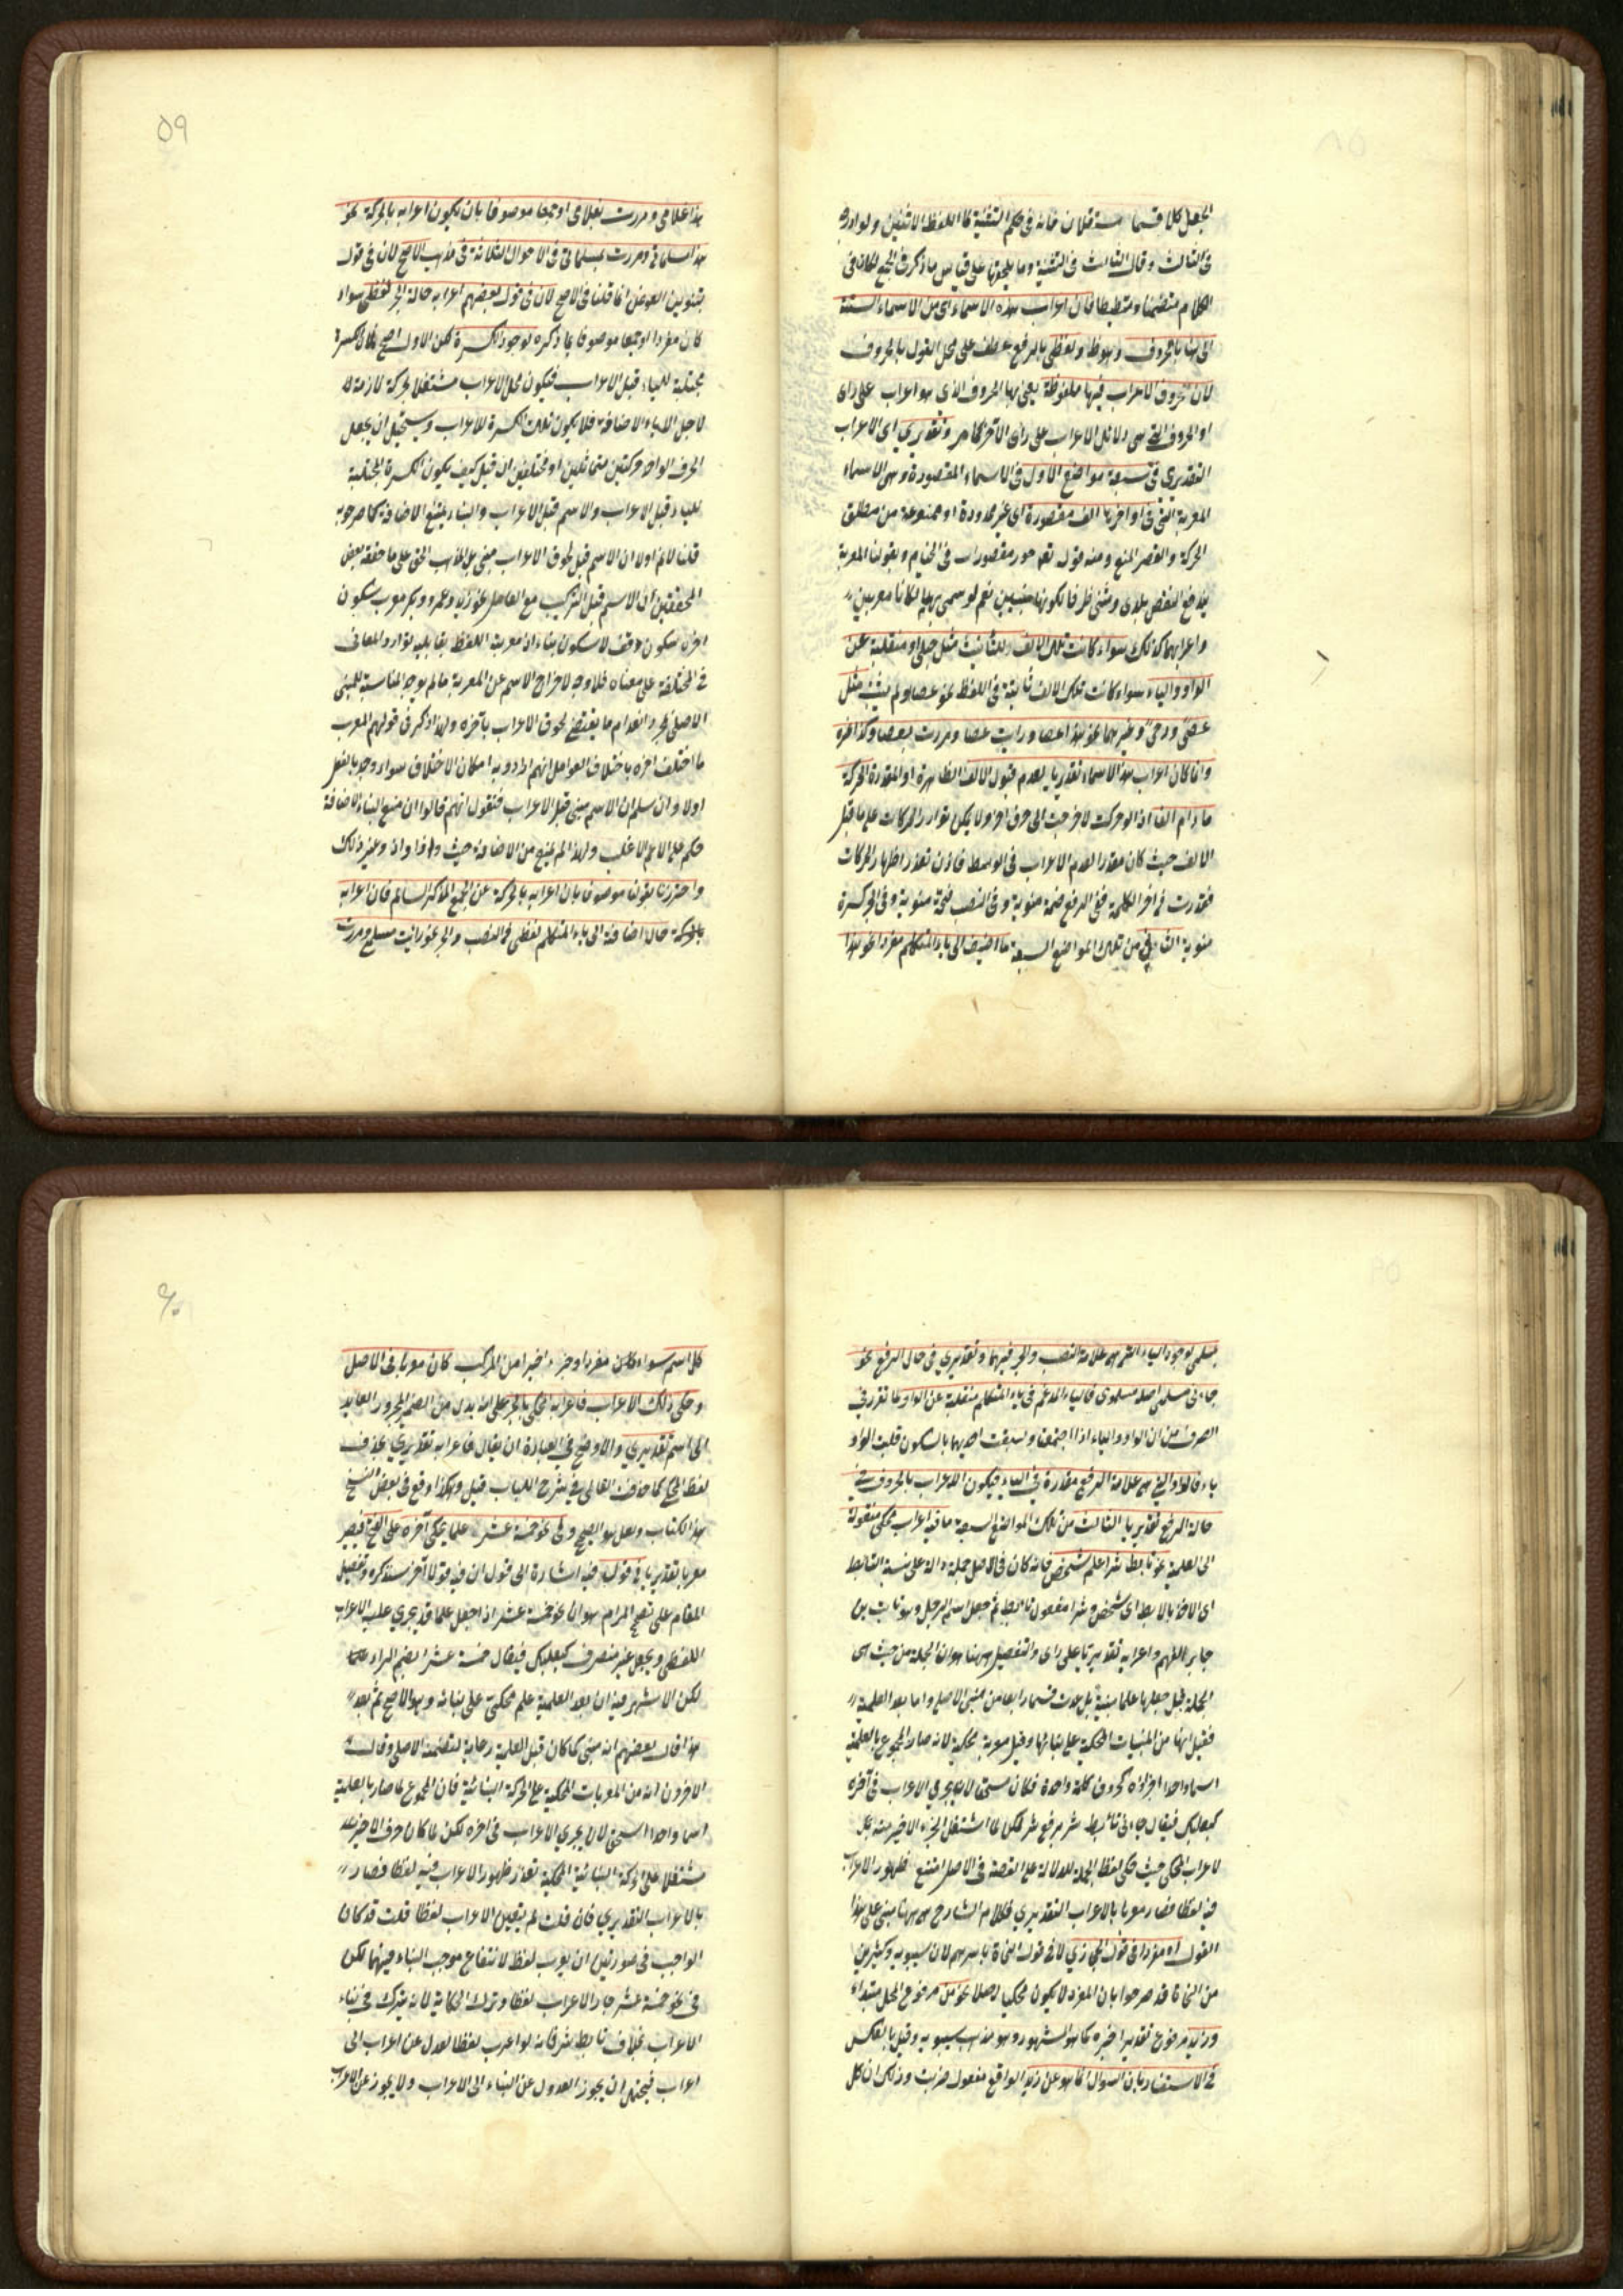 لجعل كلا قسما
فى الثالث وقال الثالث فى التثنية وما يلحقها على قياس ما ذكر فى الجمع لكان فى
الكلام فان اعراب هذه الاسماء اى من الاسماء الستة
الى هنا بالحروف ولفظى بالرفع عطف على محل القول بالحروف
لان حروف الاعراب فيها ملفوظة يعنى بها الحروف الذى هو اعراب على راى
او الحروف التى هى دلائل الاعراب على راى الآخر كما مر وتقديرى اى الاعراب
التقديرى فى سبعة مواضع الاول فى الاسماء المقصورة وهى الاسماء
المعربة التى فى اواخرها الف مقصورة اى غير ممدودة او ممنوعة من مطلق
الحركة والقصر المنع ومنه قوله تعه حور مقصورات فى الخيام وبقولنا المعربة
يندفع النقض نعم لو سمى بهما لكانا معربين
واعرابهما كذلك سواء كانت تلك الالف للتانيث مثل حبلى او منقلبة عن
الواو والياء سواء كانت تلك الالف ثابتة فى اللفظ نحو عصا او لم يثبت مثل
عصىً ورحىً وغيرهما نحو هذا عصا ورايت عصا ومررت بعصا وكذا غيره
وانما كان اعراب هذه الاسماء تقديريا لعدم قبول الالف الظاهرة او المقدرة الحركة
ما دام الفا اذ لو حركت لاخرجت الى حرف اخر ولا يمكن توارد الحركات على ما قبل
الالف حيث كان مقدرا لعدم الاعراب فى الوسط فاذن تعذر اظهار الحركات
فقدرت فى اخر الكلمة ففى الرفع ضمة منوية وفى النصب فتحة منوية وفى الجر كسرة
منوية الثانى من تلك المواضع السبعة ما اضيف الى ياء المتكلم مفردا نحو هذا
٥٩
هذا غلامى ومررت بغلامى او جمعا موصوفا بان يكون اعرابه بالحركة نحو
هذا مسلماتى ومررت بمسلماتى فى الاحوال الثلاثة فى مذهب الاصح لان فى قول
بتنوين العوض انما قلنا فى الاصح لان فى قول بعضهم اعرابه حالة الجر لفظى سواء
كان مفردا او جمعا موصوفا بما ذكره لوجود الكسرة لكن الاول اصح لان الكسرة
مجتلبة للياء قبل الاعراب فيكون محل الاعراب مشتغلا بحركة لازمة له
لاجل الياء الاضافة فلا يكون تلك الكسرة للاعراب ويستحيل ان يجعل
الحرف الواحد حركتين متماثلين او مختلفين ان قيل كيف يكون الكسرة المجتلبة
للياء قبل الاعراب والاسم قبل الاعراب والبناء يمتنع الاضافة كما صرح به
قلنا لانم اولا ان الاسم قبل لحوق الاعراب مبنى على المذهب الحق على ما حققه بعض
المحققين ان الاسم قبل التركيب مع العامل نحو زيد وعمرو وبكر معرب سكون
اخره سكون وقف لا سكون بناء اذ معربية اللفظ بقابليه توارد المعانى
المختلفة على معناه فلا وجه لاخراج الاسم عن المعربة ما لم يوجد المناسبة للمبنى
الاصل بمجرد انعدام ما يقتضى لحوق الاعراب بآخره ولهذا ذكر فى قولهم المعرب
ما اختلف اخره باختلاف العوامل انهم ارادوا به امكان الاختلاف سواء وجد بالفعل
اولا وان سلم ان الاسم مبنى قبل الاعراب فنقول انهم قالوا ان منع البناء الاضافة
حكم على الاعم الاغلب ولهذا لم يمنع من الاضافة حيث واذا واذ وغير ذلك
واحترزنا بقولنا موصوفا بان اعرابه بالحركة عن الجمع المذكر السالم فان اعرابه
بالحركة حال اضافته الى ياء المتكلم لفظى فى النصب والجر نحو رايت مسلمى ومررت
بمسلمى لوجود الياء التى هى علامة النصب والجر فيهما وتقديرى فى حال الرفع نحو
جاءنى مسلمى اصله مسلموى فالياء المدغم فى ياء المتكلم منقلبة عن الواو لما تقرر فى
الصرف من ان الواو والياء اذا اجتمعتا وسبقت احديهما بالسكون قلبت الواو
ياء فالواو التى هى علامة الرفع مقدرة فى الياء فيكون الاعراب بالحروف فى
حالة الرفع تقديريا الثالث من تلك المواضع السبعة ما فيه اعراب محكى منقولة
الى العلمية نحو تابط شرا علم شخص فانه كان فى الاصل جملة دالة على نسبة التابط
اى الاخذ بالابط اى شخص وشرا مفعول تابط ثم جعل اسم الرجل وهو ثابت بن
جابر الفهم واعرابه تقديريا على راى والتفصيل ههنا هو ان الجملة من حيث هى
الجملة قبل جعلها علما مبنية وعدت قسما رابعا من مبنى الاصل واما بعد العلمية
فقيل انها من المبنيات المحكية على بنائها وقيل معربة محكية لانه صار المجموع بالعلمية
اسما واحدا اجزاؤه كحروف كلمة واحدة فكان مستحقا لان يجرى الاعراب فى آخره
كبعلبك فيقال جاءنى تابط شر برفع شر لكن لما اشتغل الجزء الاخير منه بكل
لاعراب المحكى حيث حكى لفظ الجملة للدلالة على القصة فى الاصل امتنع ظهور الاعراب
فيه لفظا فصار معربا بالاعراب التقديرى فكلام الشارح ههنا مبنى على هذا
القول او مفردا فى قول الحجازى لا فى قول النحاة باسرهم لان سيبويه وكثير من
من النحاة قد صرحوا بان المفرد لا يكون محكيا اصلا نحو من مرفوع المحل مبتداء
وزيد مرفوع تقديرا خبره كما هو المشهور وهو مذهب سيبويه وقيل بالعكس
فى الاستفسار بان السوال انما هو عن زيد الواقع مفعول ضربت وذلك ان كل
۶۰
كل اسم سواء كان مفردا او جزء اخيرا من المركب كان معربا فى الاصل
وحكى ذلك الاعراب فاعرابه المحكى بالجر على انه بدل من الضمير المجرور العايد
الى اسم تقديرى والاوضح فى العبارة ان يقال فاعرابه تقديرى بحذف
لفظ المحكى كما حذف الفالى فى شرح اللباب قيل وهكذا وقع فى بعض النسخ
هذا الكتاب ولعل هو الصحيح وفى نحو خمسة عشر علما يحكى آخره على الفتح فيصير
معربا تقديريا فى قول فيه اشارة الى قول ان فيه قولا آخر سنذكره وتفصيل
المقام على نقيح المرام هو ان نحو خمسة عشر اذا جعل علما قد يجرى عليه الاعراب
اللفظى ويجعل غير منصرف كبعلبك فيقال خمسة عشر بضم الراء
لكن الاشهر فيه ان بعد العلمية علم محكى على بنائه وهو الاصح ثم بعد
هذا قال بعضهم انه مبنى كما كان قبل العلمية رعاية لتضمنه الاصلى وقال
الآخرون انه من المعربات المحكية على الحركة البنائية فان المجموع لما صار بالعلمية
اسما واحدا استحق لان يجرى الاعراب فى اخره لكن لما كان حرف الاخير
مشتغلا على الحركة البنائية المحكية تعذر ظهور الاعراب فيه لفظا فصار
بالاعراب التقديرى فان قلت لم يتعين الاعراب لفظا قلت قد كان
الواجب فى صورتين ان يعرب لفظا لانتفاع موجب البناء فيهما لكن
فى نحو خمسة عشر جاز الاعراب لفظا وترك الحكاية لانه يترك فى بناء
الاعراب بخلاف تابط شر فانه لو اعرب لفظا لعدل عن اعراب الى
اعراب فيحتمل ان يجوز العدول عن البناء الى الاعراب ولا يجوز عن الاعراب